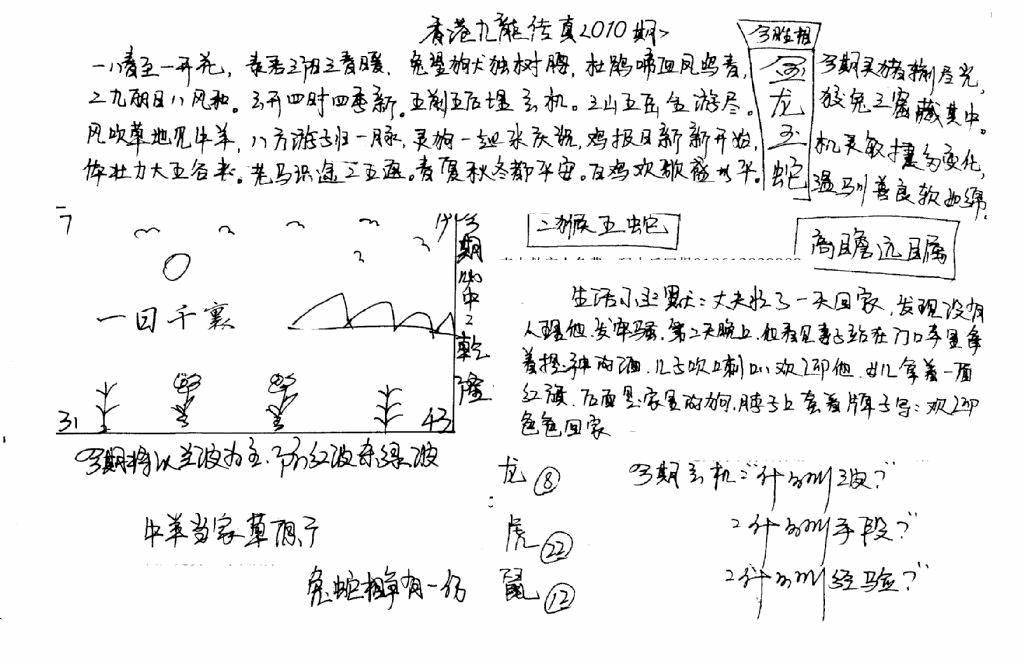 香港九龍传真2010期
一八春至一开花，春君三阳三春暖，兔望狗犬独树腾，杜鹃啼血凤鸣春，
二九朝日八风和。玄开四时四季新。五前五后埋玄机。三山五岳全游尽。
风吹草地见牛羊，八方游子归一脉，灵狗一起来庆祝，鸡报日新新开始，
体壮力大五谷来。老马识途二五遇。春夏秋冬都平安。百鸡欢歌盛世平。
今肖相
金龙玉蛇
今期灵猪輸尽光，
狡兔三窟藏其中。
机灵敏捷多变化，
温驯善良软如绵。
7
19
一日千裏
31
43
今期必中二乾隆
二猴五蛇
高瞻远瞩
生活小
丈夫忙了一天回家，发现没有
人理他，发牢骚，第二天晚上，他看见妻子站在门口手里拿
着提神的酒，儿子吹喇叭欢迎他，女儿拿着一面
红旗，后面是家里的狗，脖子上套着牌子写：欢迎
爸爸回家
今期将以兰波为主，防红波弃绿波
牛羊当家草原宁
兔蛇相争有一份
龙 ⑧
虎 22
鼠 12
今期玄机："什么叫
"什么叫手段？"
"什么叫经验？"